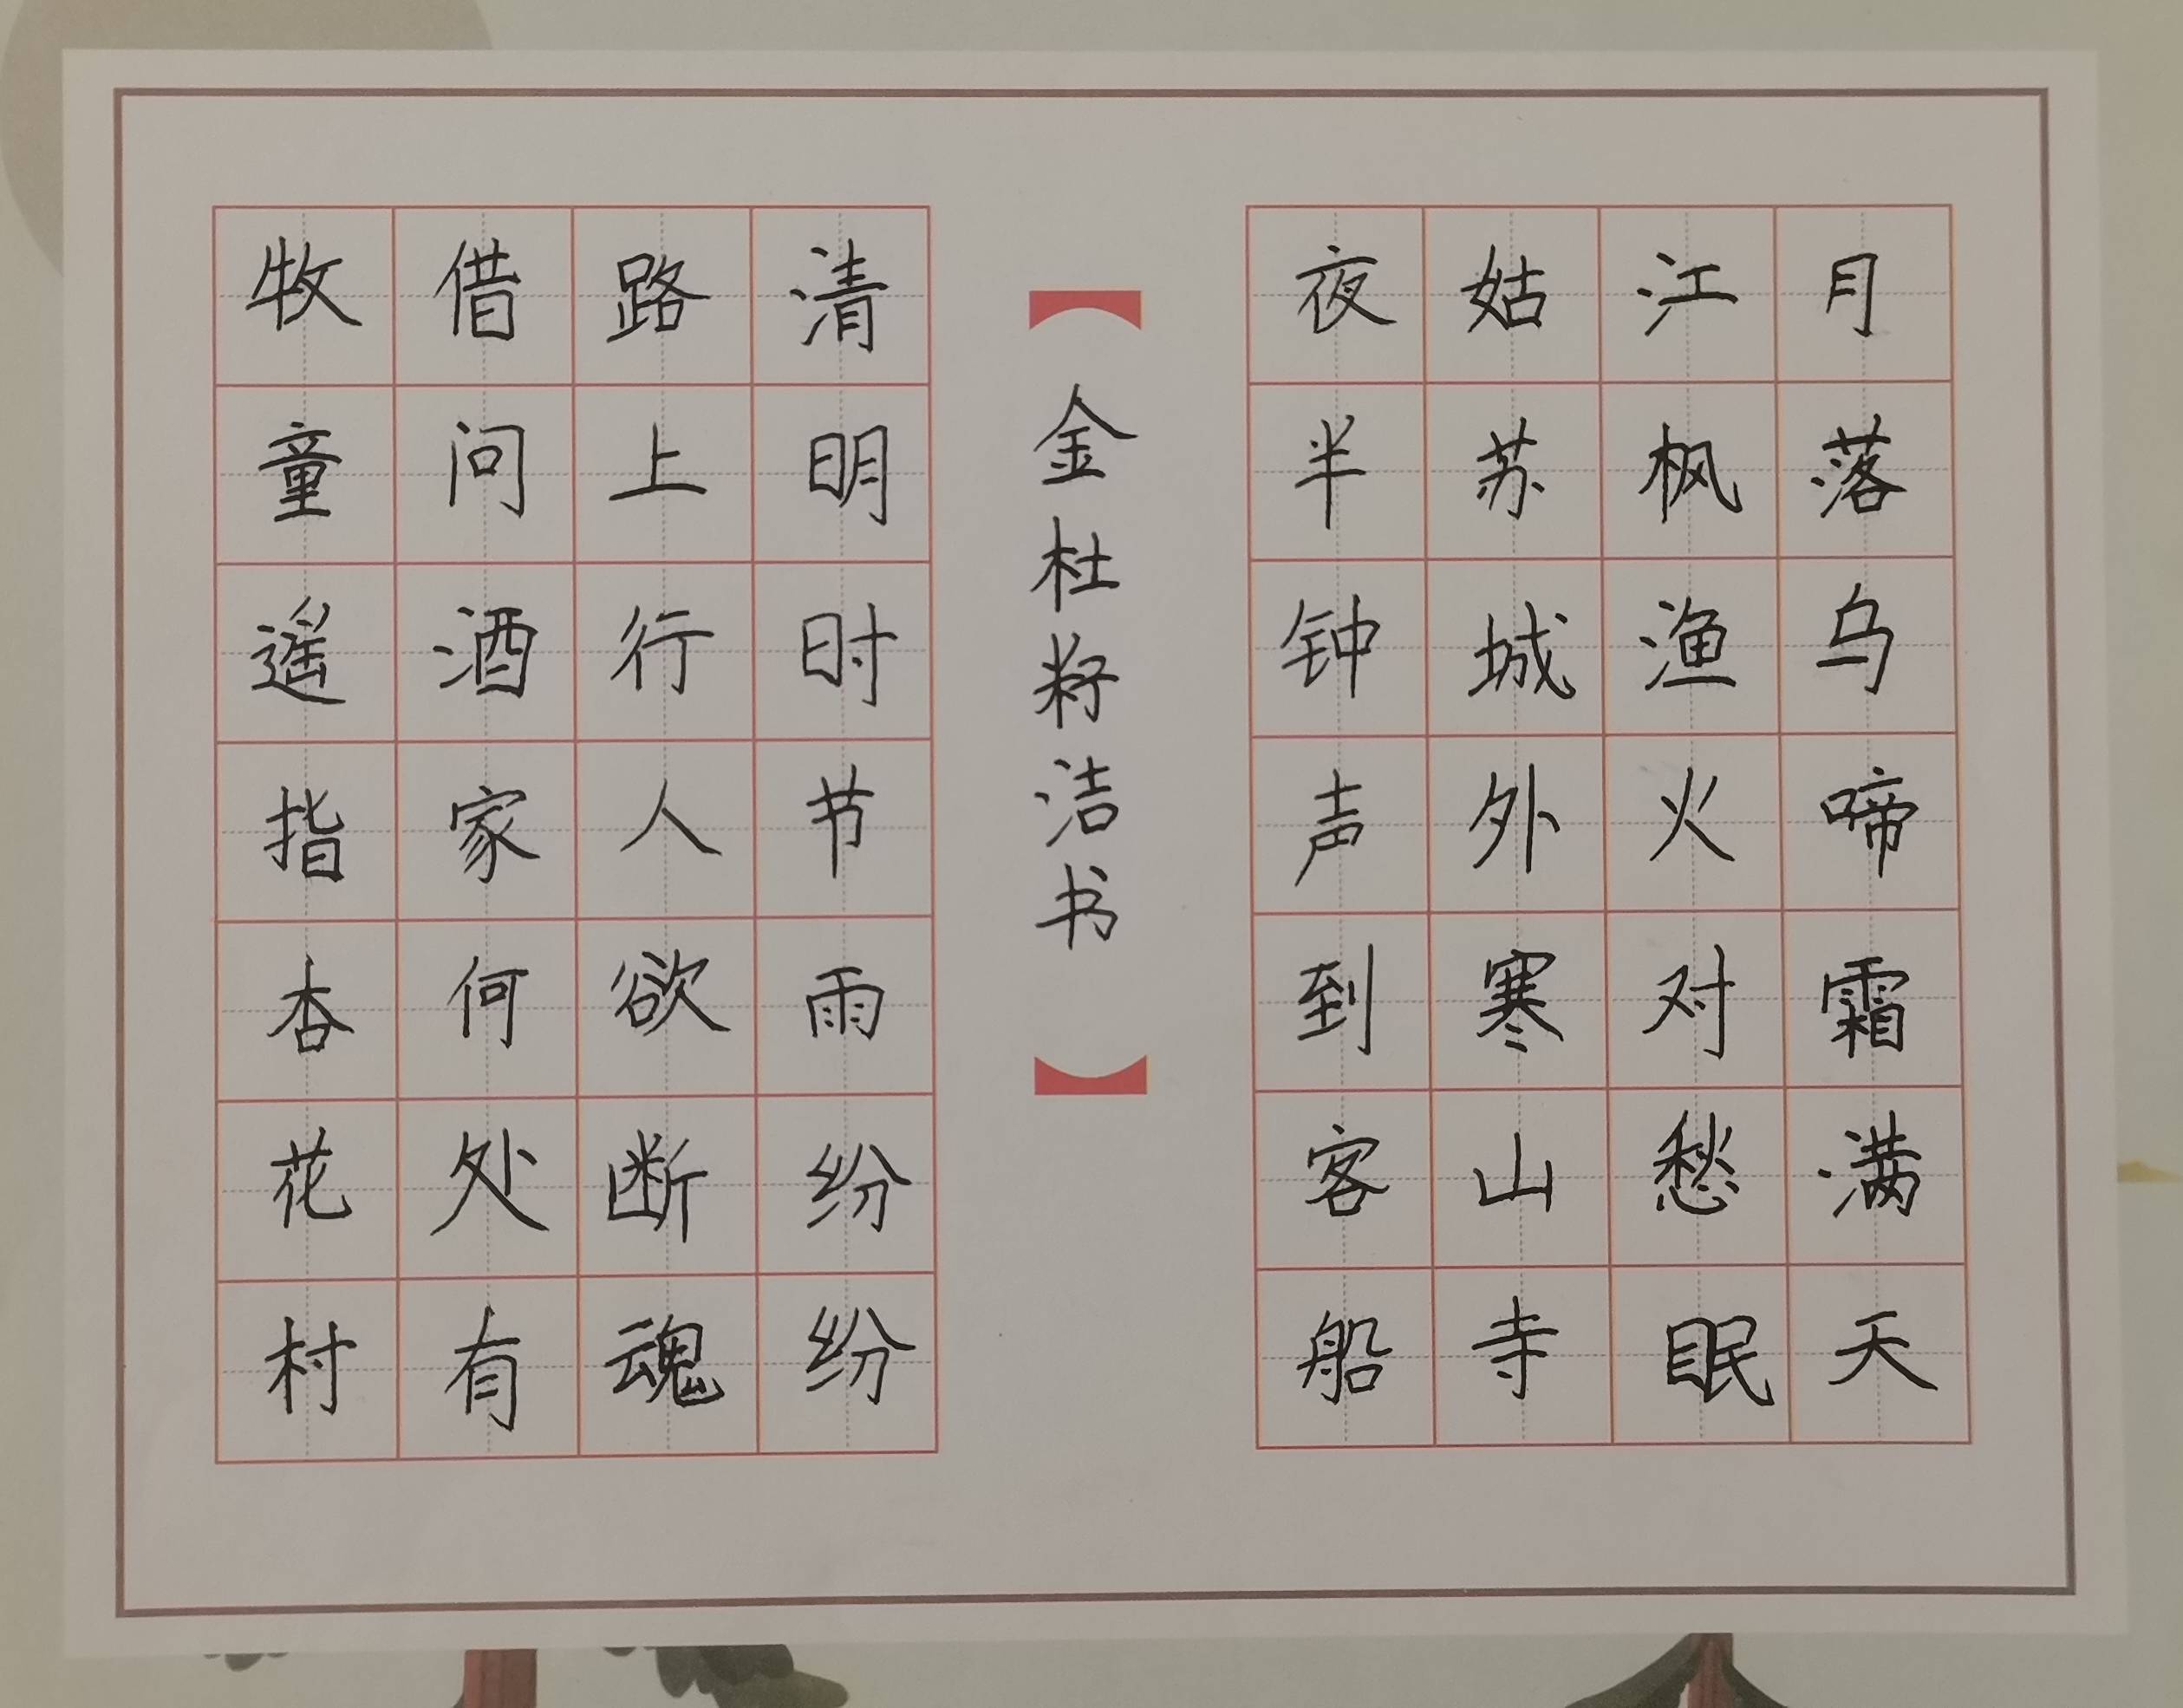 月落乌啼霜满天
江枫渔火对愁眠
姑苏城外寒山寺
夜半钟声到客船
金杜籽洁书
清明时节雨纷纷
路上行人欲断魂
借问酒家何处有
牧童遥指杏花村